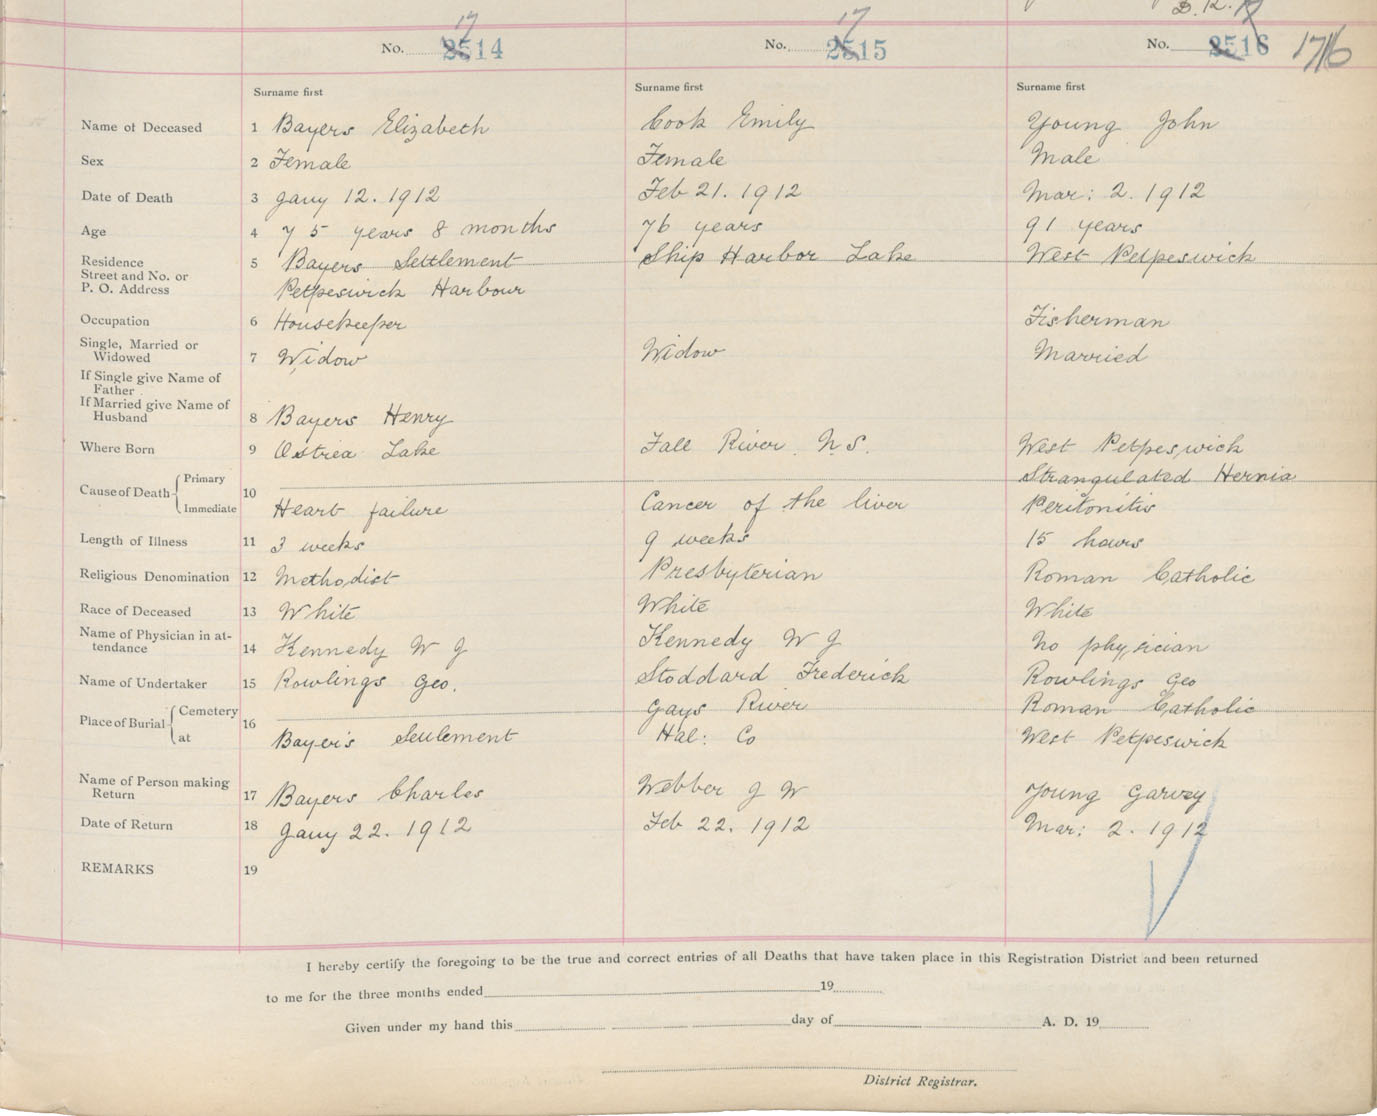 D. R. 17
17 17
No. 2514 No. 2515 No. 2516 1716
Surname first Surname first Surname first
Name of Deceased 1 Bayers Elizabeth Cook Emily Young John
Sex 2 Female Female Male
Date of Death 3 Jany 12. 1912 Feb 21. 1912 Mar: 2. 1912
Age 4 75 years 8 months 76 years 91 years
Residence
Street and No. or 5 Bayers Settlement Ship Harbor Lake West Petpeswick
P. O. Address Petpeswick Harbour
Occupation 6 Housekeeper Fisherman
Single, Married or
Widowed 7 Widow Widow Married
If Single give Name of
Father
If Married give Name of
Husband 8 Bayers Henry
Where Born 9 Ostrea Lake Fall River N.S. West Petpeswick
Cause of Death Primary 10 Strangulated Hernia
Immediate Heart failure Cancer of the liver Peritonitis
Length of Illness 11 3 weeks 9 weeks 15 hours
Religious Denomination 12 Methodist Presbyterian Roman Catholic
Race of Deceased 13 White White White
Name of Physician in at-
tendance 14 Kennedy W J Kennedy W J No physician
Name of Undertaker 15 Rowlings Geo. Stoddard Frederick Rowlings Geo
Place of Burial Cemetery 16 Gays River Roman Catholic
at Bayer's Seulement Hal: Co West Petpeswick
Name of Person making
Return 17 Bayers Charles Webber J W Young Garvey
Date of Return 18 Jany 22. 1912 Feb 22. 1912 Mar: 2. 1912
REMARKS 19
I hereby certify the foregoing to be the true and correct entries of all Deaths that have taken place in this Registration District and been returned
to me for the three months ended 19
Given under my hand this day of A. D. 19
District Registrar.